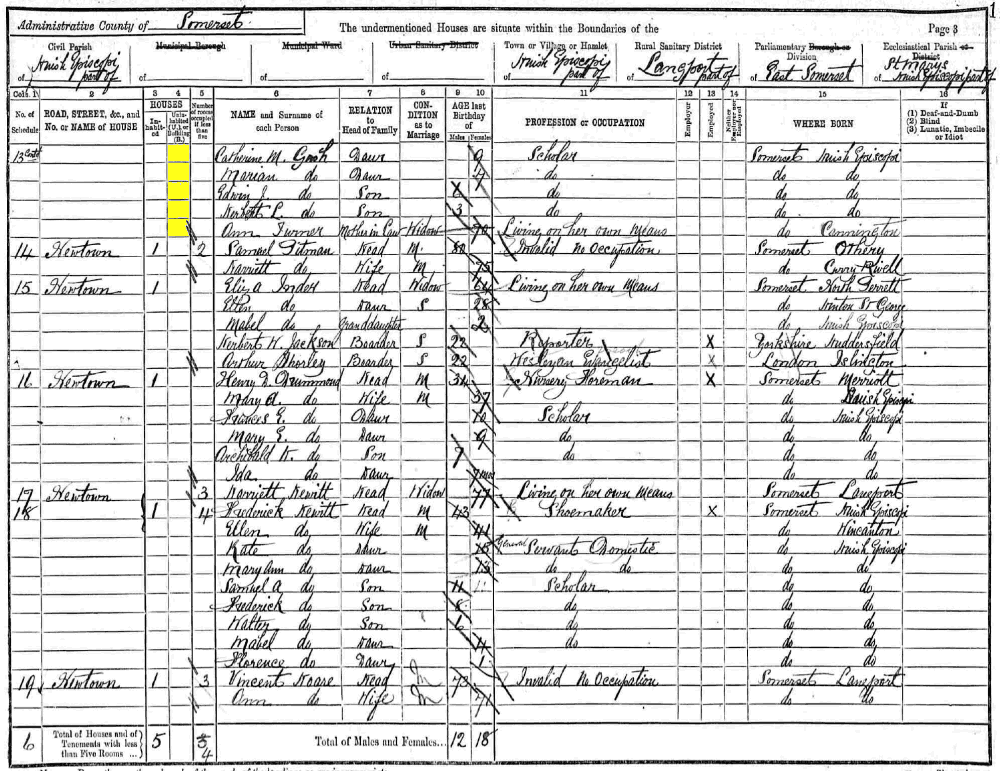 1
Administrative County of Somerset.
The undermentioned Houses are situate within the Boundaries of the
Page 3
Civil Parish
Municipal Borough
Municipal Ward
Urban Sanitary District
Town or Village or Hamlet
Rural Sanitary District
Parliamentary Borough or Division
Ecclesiastical Parish or District
of Muish Episcopi part of
of
of
of
of Muish Episcopi part of
of Langport part of
of East Somerset
of St Marys Muish Episcopi part of
Cols. 1 2 3 4 5 6 7 8 9 10 11 12 13 14 15 16
No. of Schedule
ROAD, STREET, &c., and No. or NAME of HOUSE
HOUSES
Inhabited
Uninhabited (U.), or Building (B.)
Number of rooms occupied if less than five
NAME and Surname of each Person
RELATION to Head of Family
CONDITION as to Marriage
AGE last Birthday of
Males Females
PROFESSION or OCCUPATION
Employer
Employed
Neither Employer nor Employed
WHERE BORN
If
(1) Deaf-and-Dumb
(2) Blind
(3) Lunatic, Imbecile or Idiot
13 Contd Catherine M. Daur 9 Scholar Somerset Muish Episcopi
Marian do Daur 4 do do do
Edwin J. do Son do do do
Herbert L. do Son 3 do do do
Ann Turner Mother in Law Widow 70 Living on her own Means do Cannington
14 Newtown 1 2 Samuel Pitman Head M. 80 Invalid No Occupation Somerset Othery
Harriett do Wife M 75 do Curry Rivell
15 Newtown 1 Eliza Inder Head Widow 64 Living on her own Means Somerset North Perrett
Ellen do Daur S 28 do Hinton St George
Mabel do Granddaughter 2 do Muish Episcopi
Herbert W. Jackson Boarder S 22 Reporter X Yorkshire Huddersfield
Arthur Boarder S 22 Wesleyan Evangelist X London Islington
16 Newtown 1 Henry D. Drummond Head M 34 Nursery Foreman X Somerset Merriott
Mary A. do Wife M 37 do Muish Episcopi
Frances E. do Daur 10 Scholar do Muish Episcopi
Mary E. do Daur 9 do do do
Archibald K. do Son 7 do do do
Ida do Daur 7 mos do do
17 Newtown 3 Harriett Hewitt Head Widow 77 Living on her own Means Somerset Langport
18 1 4 Frederick Hewitt Head M 43 Shoemaker X Somerset Muish Episcopi
Ellen do Wife M 41 do Wincanton
Kate do Daur 15 General Servant Domestic do Muish Episcopi
Mary Ann do Daur 13 do do do do
Samuel A do Son 11 Scholar do do
Frederick do Son 8 do do do
Walter do Son 6 do do do
Mabel do Daur 4 do do do
Florence do Daur 1 do do
19 Newtown 1 3 Vincent Hoare Head M 73 Invalid No Occupation Somerset Langport
Ann do Wife M 71 do do
6 Total of Houses and of Tenements with less than Five Rooms ... 5 3 4 Total of Males and Females... 12 18